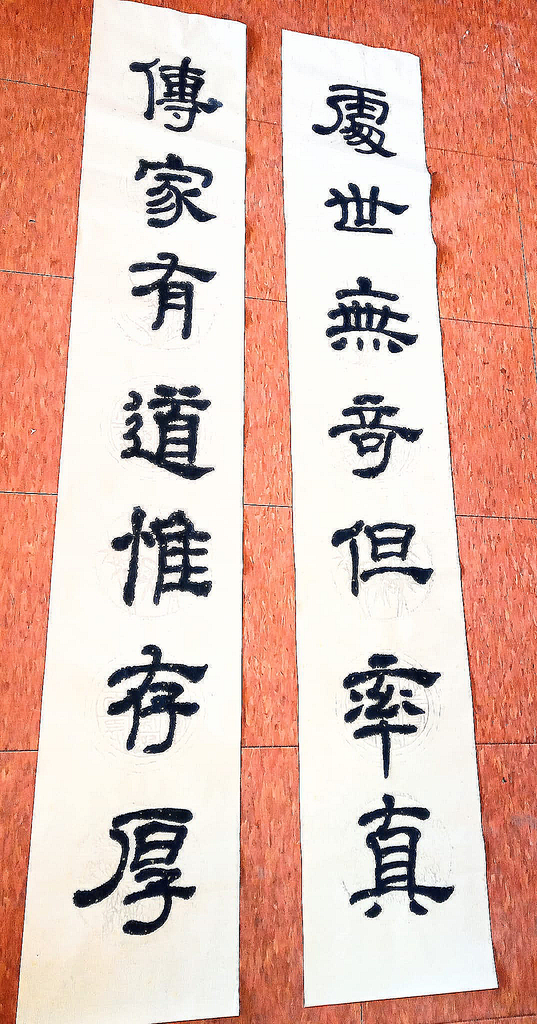 處世無奇但率真
傳家有道惟存厚